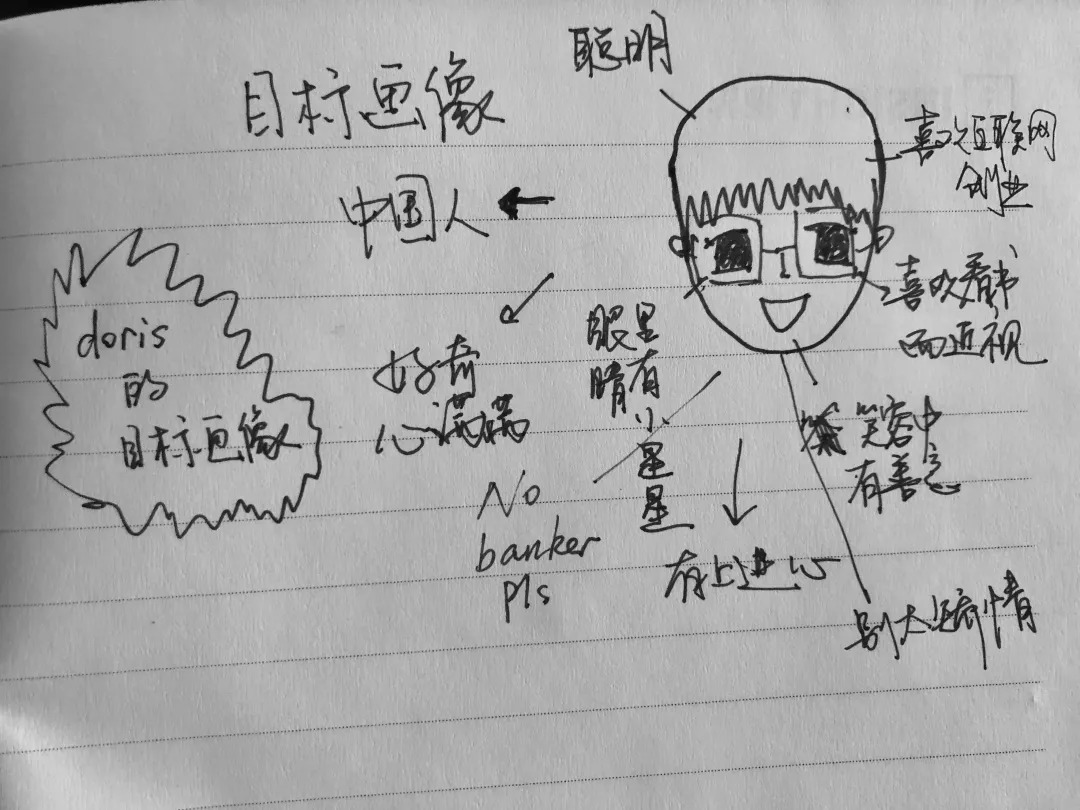 目标画像
聪明
喜欢互联网
创业
中国人
喜欢看书
而近视
doris
的
目标画像
好奇
心满满
眼睛
里有小星星
笑容中
有善意
No
banker
pls
有上进心
别太矫情